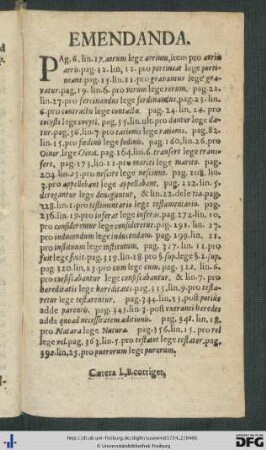 EMENDANDA.
PAg. 6. lin. 17. atrum lege aerium, item pro atris
aeris. pag. 12. lin. 12. pro pertineat lege perti-
neant. pag. 15. lin. 11. pro gravantur lege gra-
vatur. pag. 19. lin. 6. pro verùm lege rerum, pag. 22.
lin. 27. pro fercinandus lege ferdinandus, pag. 23. lin.
6. pro contractu lege contactu. pag. 24. lin. 14. pro
lege pag. 55. lin. ult. pro dantur lege da-
tur, pag. 56. lin. 7. pro rationis lege rationi. pag. 82.
lin. 15. pro lege pag. 160. lin. 26. pro
Oinar lege Oinat. pag. 164. lin. 6. transert lege trans-
fert, pag. 173. lin. 21. pro mariti lege marito. pag.
204. lin. 25. pro nesiere lege nesciere. pag. 208. lin.
3. pro appellebant lege appellabant, pag. 222. lin. 5.
derogantur lege devoguntur, & lin. 22. dele tia. pag.
228. lin. 1. pro testimentaria lege testamentaria. pag.
236. lin. 19. pro inferat lege infero. pag. 272. lin. 10.
pro considerentur lege consideretur. pag. 291. lin. 27.
pro inducendum lege inducendam. pag. 299. lin. 21.
pro institutum lege institutum. pag. 317. lin. 11. pro
fuit lege sint. pag. 319. lin. 18 pro § sup. lege § 1. sup.
pag. 320. lin. 23. pro cum lege eum. pag. 322. lin. 6.
pro lege consistabantur, & lin. 7. pro
hereditatis lege hereditates. pag. 335. lin. 9. pro testa-
retur lege testarentur. pag. 344. lin. 33. post potius
adde parenti. pag. 345. lin. 3. post exerunti heredes
adde quoad necessitatem aditionis. pag. 348. lin. 18.
pro Natara lege Natura. pag. 356. lin. 15. pro rel
lege vel. pag. 363. lin. 5. pro testant lege testator. pag.
398. lin. 25. pro puerorum lege puerum.
Caetera L.B. corriget,
http://dl.ub.uni-freiburg.de/diglit/suesswind1724_2/0466
© Universitätsbibliothek Freiburg
gefördert durch die
DFG